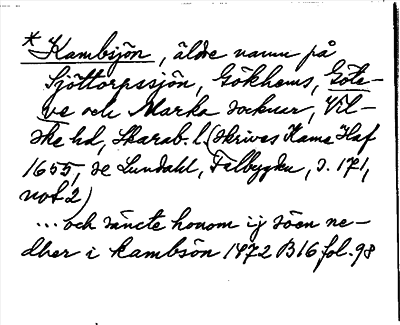 *Kambsjön, äldre namn på
Sjöttorpssjön, Gökhems, Göte-
ve och Marka socknar, Vil-
ske hd, Skarab. l. (skrives Kams Haf
1655, se Lundahl, Falbygden, s. 171,
not 2)
... och säncte honom ij söen ne-
dher i kambsön 1472 B16 fol. 98